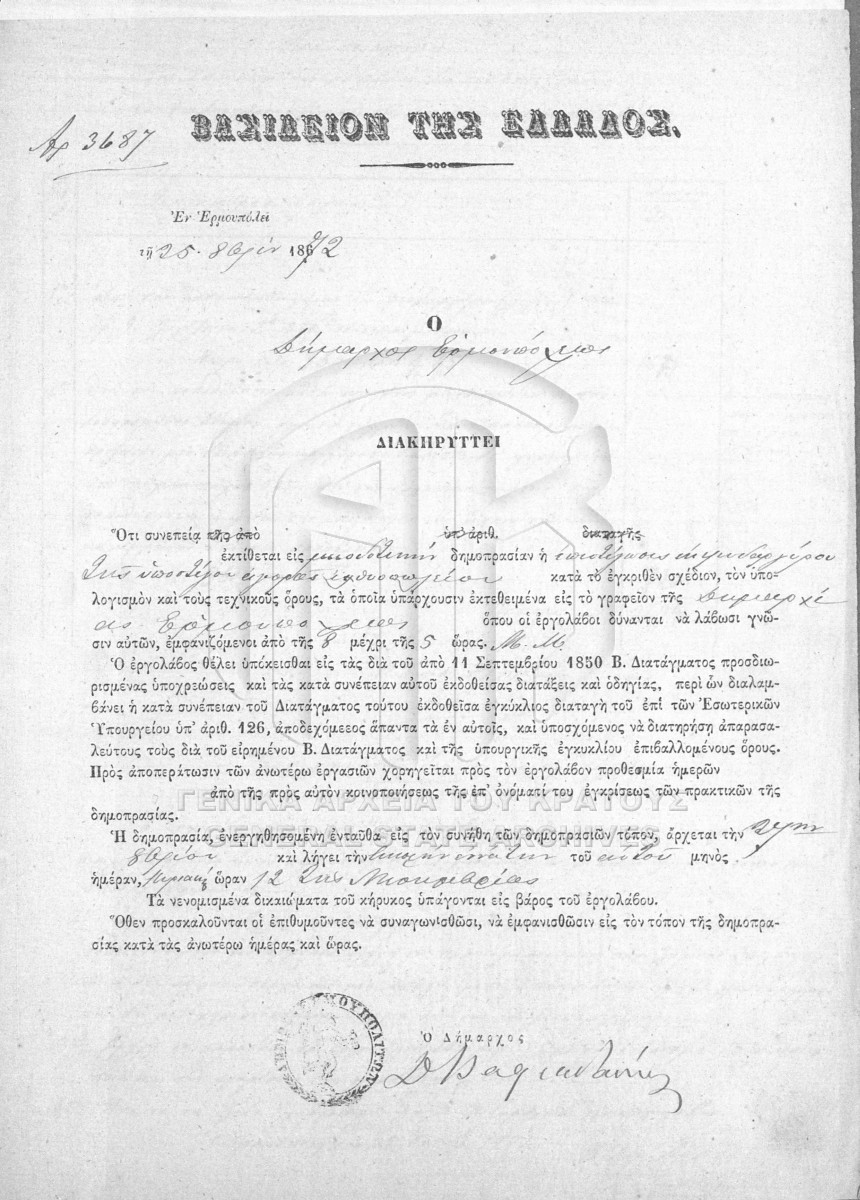 ΒΑΣΙΛΕΙΟΝ ΤΗΣ ΕΛΛΑΔΟΣ.
Αρ 3687
Ἐν Ἑρμουπόλει
τῇ 25. 8βρίου 1872
Ο
Δήμαρχος Ἑρμουπόλεως
ΔΙΑΚΗΡΥΤΤΕΙ
Ὅτι συνεπείᾳ τῆς ἀπὸ ὑπ' ἀριθ. διαταγῆς
ἐκτίθεται εἰς μειοδοτικὴν δημοπρασίαν ἡ
τῆς ὑποστέγου ἀγορᾶς ἰχθυοπωλείου κατὰ τὸ ἐγκριθὲν σχέδιον, τὸν ὑπο-
λογισμὸν καὶ τοὺς τεχνικοὺς ὅρους, τὰ ὁποῖα ὑπάρχουσιν ἐκτεθειμένα εἰς τὸ γραφεῖον τῆς Δημαρχί
ας Ἑρμουπόλεως ὅπου οἱ ἐργολάβοι δύνανται νὰ λάβωσι γνῶ-
σιν αὐτῶν, ἐμφανιζόμενοι ἀπὸ τῆς 8 μέχρι τῆς 5 ὥρας. Μ. Μ.
Ὁ ἐργολάβος θέλει ὑπόκεισθαι εἰς τὰς διὰ τοῦ ἀπὸ 11 Σεπτεμβρίου 1850 Β. Διατάγματος προσδιω-
ρισμένας ὑποχρεώσεις καὶ τὰς κατὰ συνέπειαν αὐτοῦ ἐκδοθείσας διατάξεις καὶ ὁδηγίας, περὶ ὧν διαλαμ-
βάνει ἡ κατὰ συνέπειαν τοῦ Διατάγματος τούτου ἐκδοθεῖσα ἐγκύκλιος διαταγὴ τοῦ ἐπὶ τῶν Ἐσωτερικῶν
Ὑπουργείου ὑπ' ἀριθ. 126, ἀποδεχόμεεος ἅπαντα τὰ ἐν αὐτοῖς, καὶ ὑποσχόμενος νὰ διατηρήσῃ ἀπαρασα-
λεύτους τοὺς διὰ τοῦ εἰρημένου Β. Διατάγματος καὶ τῆς ὑπουργικῆς ἐγκυκλίου ἐπιβαλλομένους ὅρους.
Πρὸς ἀποπεράτωσιν τῶν ἀνωτέρω ἐργασιῶν χορηγεῖται πρὸς τὸν ἐργολάβον προθεσμία ἡμερῶν
ἀπὸ τῆς πρὸς αὐτὸν κοινοποιήσεως τῆς ἐπ' ὀνόματί του ἐγκρίσεως τῶν πρακτικῶν τῆς
δημοπρασίας.
ΓΕΝΙΚΑ ΑΡΧΕΙΑ ΤΟΥ ΚΡΑΤΟΥΣ
GENERAL STATE ARCHIVES
Ἡ δημοπρασία, ἐνεργηθησομένη ἐνταῦθα εἰς τὸν συνήθη τῶν δημοπρασιῶν τόπον, ἄρχεται τὴν
8βρίου καὶ λήγει τὴν εἰκοστὴν ἐννάτην τοῦ αὐτοῦ μηνὸς
ἡμέραν, ὥραν 12 τῆς Μεσημβρίας
Τὰ νενομισμένα δικαιώματα τοῦ κήρυκος ὑπάγονται εἰς βάρος τοῦ ἐργολάβου.
Ὅθεν προσκαλοῦνται οἱ ἐπιθυμοῦντες νὰ συναγωνισθῶσι, νὰ ἐμφανισθῶσιν εἰς τὸν τόπον τῆς δημοπρα-
σίας κατὰ τὰς ἀνωτέρω ἡμέρας καὶ ὥρας.
ΔΗΜΟΣ ΕΡΜΟΥΠΟΛΙΤΩΝ
Ὁ Δήμαρχος
Δ Βαφιαδάκης